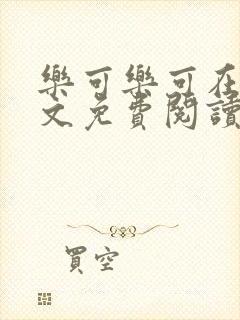 樂可樂可在
文免費閱讀
買空